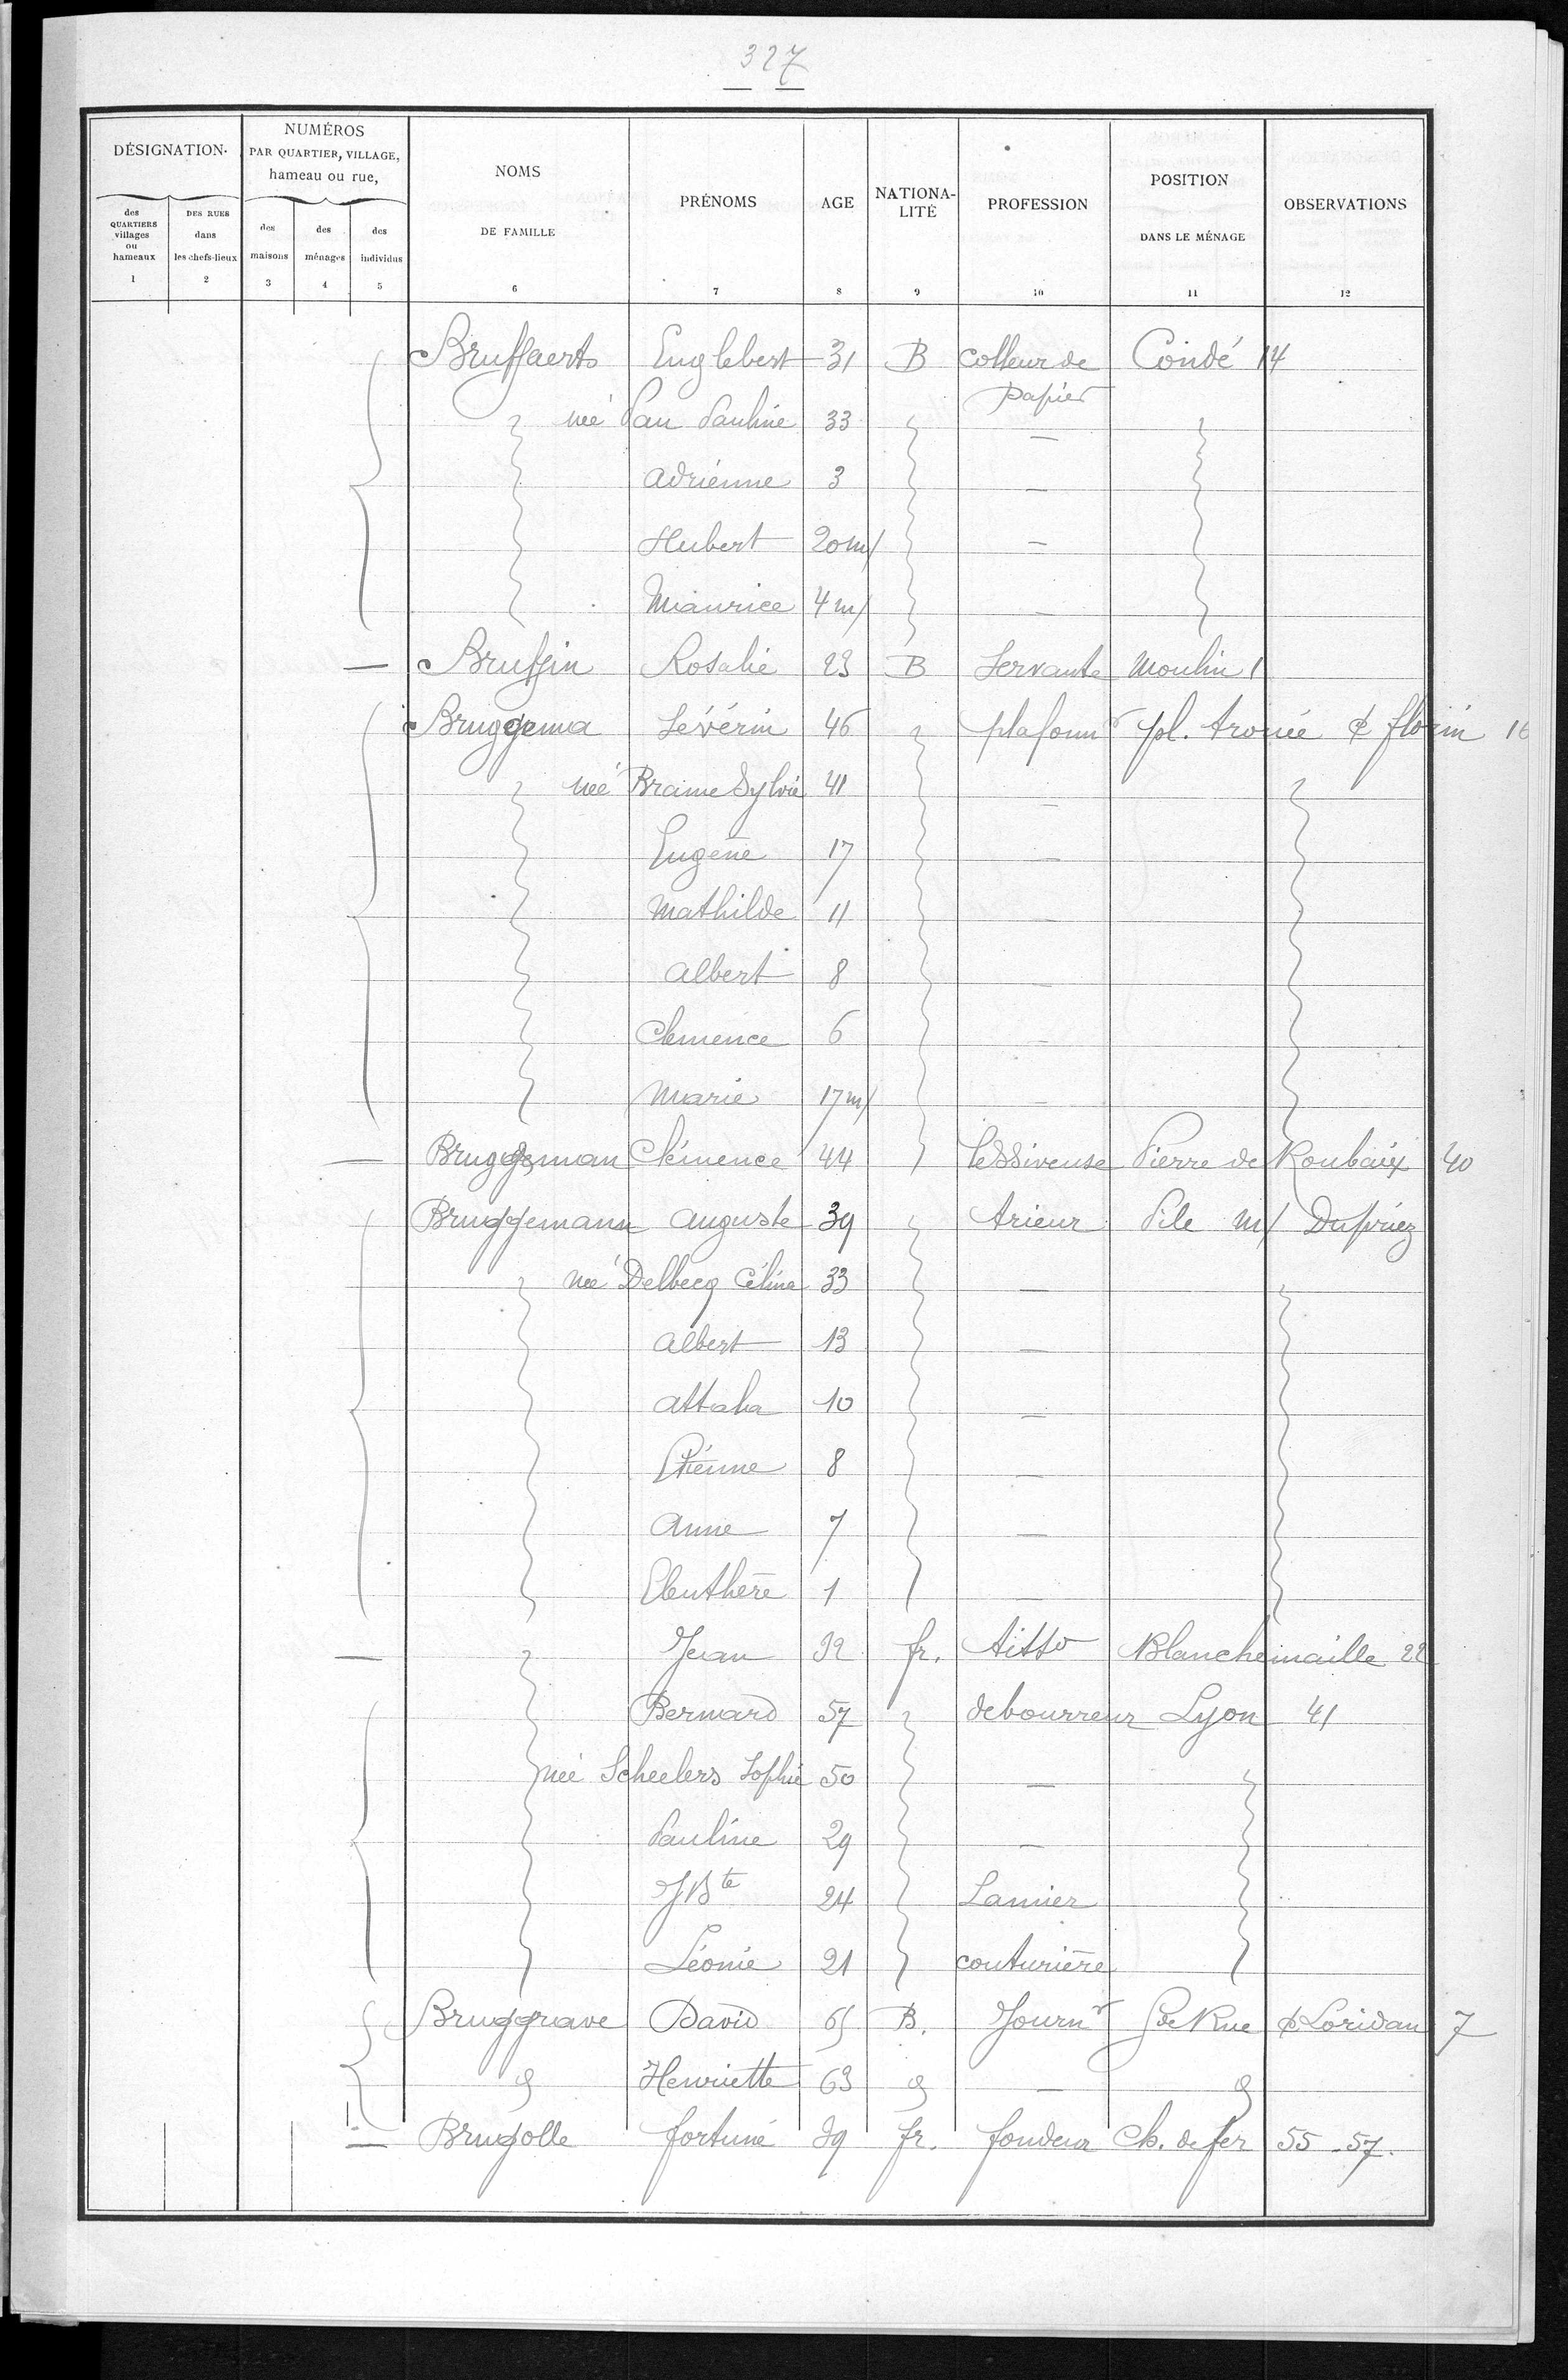 327
DÉSIGNATION
NUMÉROS PAR QUARTIER, VILLAGE, hameau ou rue,
NOMS DE FAMILLE
PRÉNOMS
AGE
NATIONALITÉ
PROFESSION
POSITION DANS LE MÉNAGE
OBSERVATIONS
des QUARTIERS villages ou hameaux
DES RUES dans les chefs-lieux
des maisons
des ménages
des individus
1 2 3 4 5 6 7 8 9 10 11 12
Bruffaerts Englebert 31 B colleur de papier Condé 14
née Pau Pauline 33 —
Adrienne 3 —
Hubert 20 m/ —
Maurice 4 m/ —
— Bruffin Rosalie 23 B Servante Moulin 1
Bruggema Sévérin 46 plafonnr pl. trouée c/ florin 16
née Brame Sylvie 41 —
Eugène 17 —
Mathilde 11 —
Albert 8 —
Clemence 6 —
Marie 17 m/ —
— Bruggeman Clémence 44 lessiveuse Pierre de Roubaix 40
Bruggemann Auguste 39 trieur Pile m/ Dupriez
née Delbecq Céline 33 —
Albert 13 —
Attala 10 —
Etienne 8 —
Anne 7 —
Eleuthère 1 —
— Jean 32 fr. tissd Blanchemaille 22
Bernard 57 debourreur Lyon 41
née Scheelers Sophie 50 —
Pauline 29 —
JBte 24 Lamier
Léonie 21 couturière
Bruggrave David 65 B. Journr Gde Rue c/ Loridan 7
Henriette 63 —
— Brugolle fortuné 39 fr. fondeur Ch. de fer 55-57.